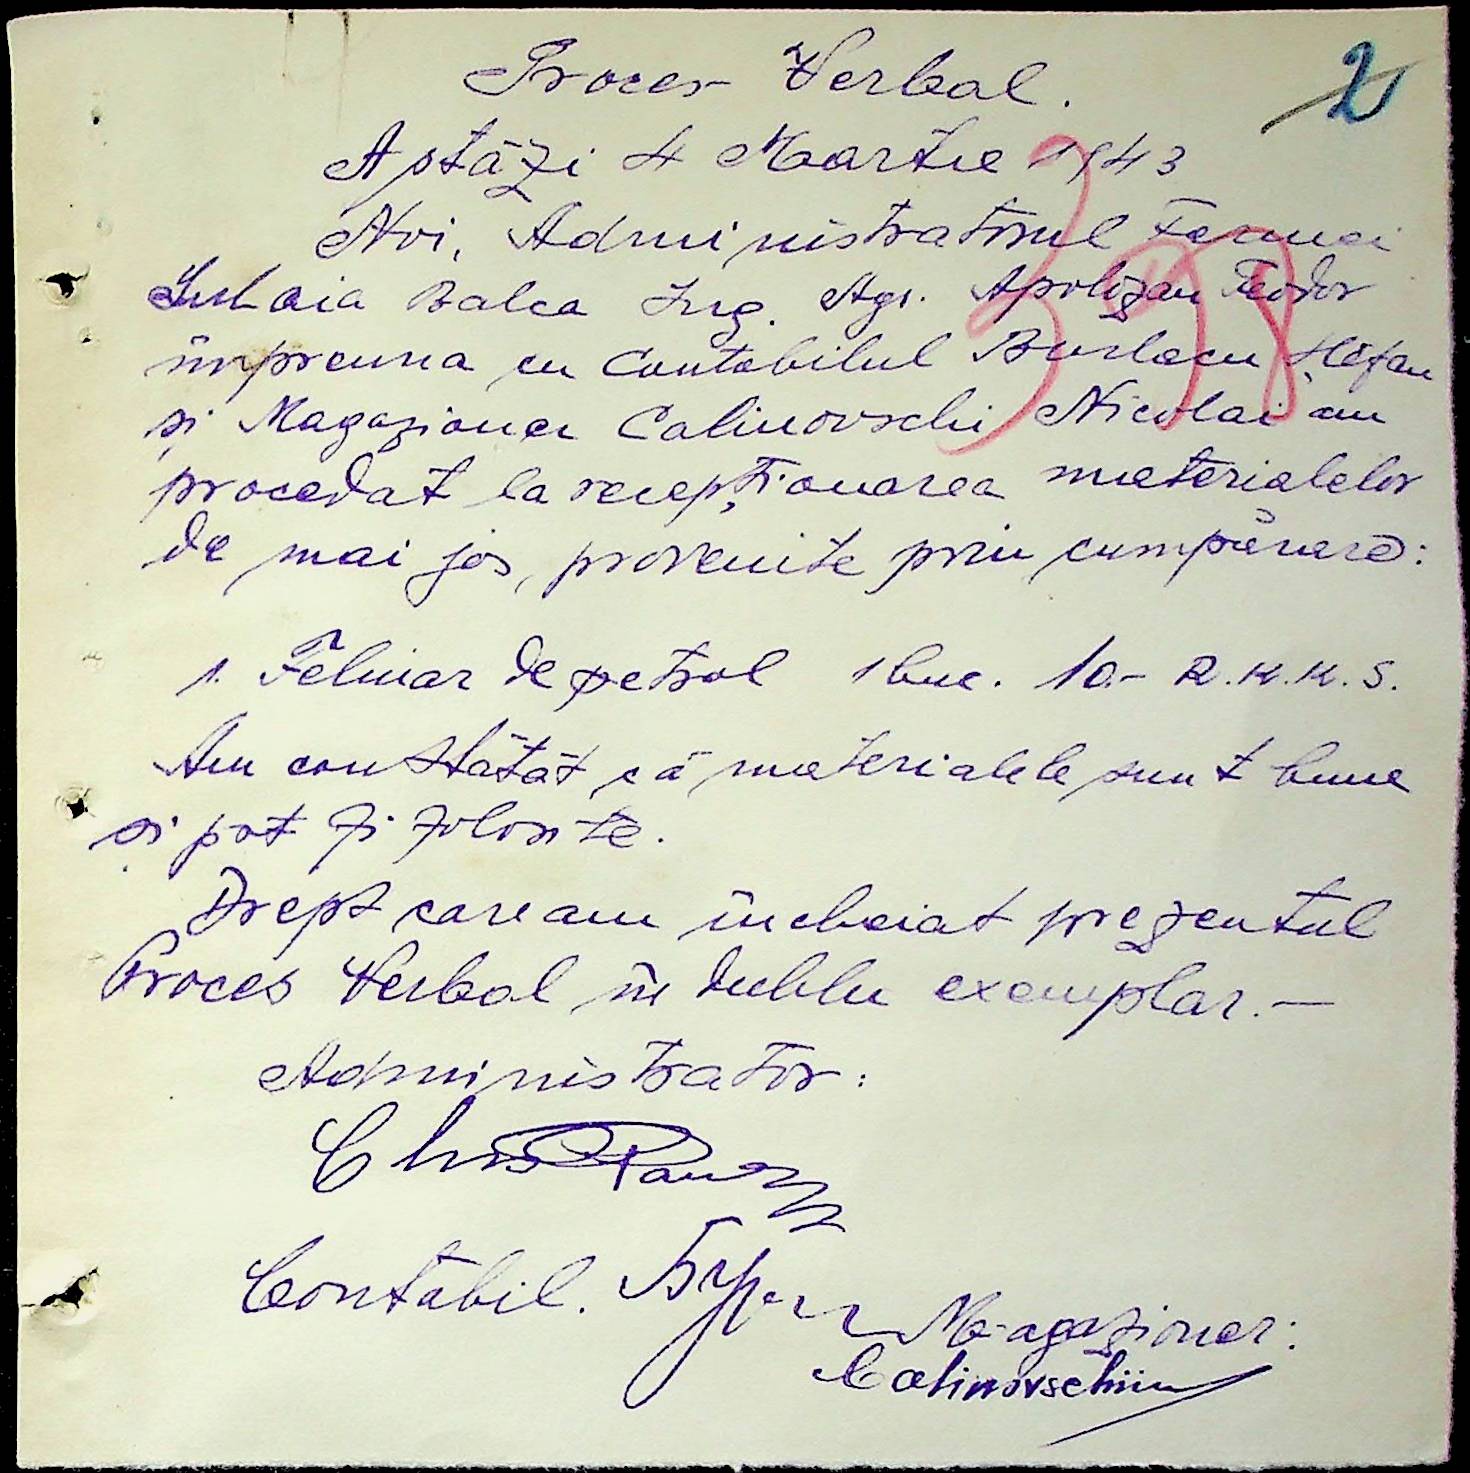 Proces Verbal.
2
Astăzi 4 Martie 1943
398
Noi, Administratorul Fermei
Balca Ing. Agr. Apolozan Teodor
împreuna cu Contabilul Burlacu Ștefan
și Magazioner Calinovschi Nicolai am
procedat la recepționarea materialelor
de mai jos, provenite prin cumpărare:
1. Felinar de petrol 1 buc. 10.- R.K.K.S.
Am constătăt că materialele sunt bune
și pot fi folosite.
Drept care am încheiat prezentul
Proces Verbal în dublu exemplar.—
Administrator:
Contabil.
Magazioner:
Calinovschi